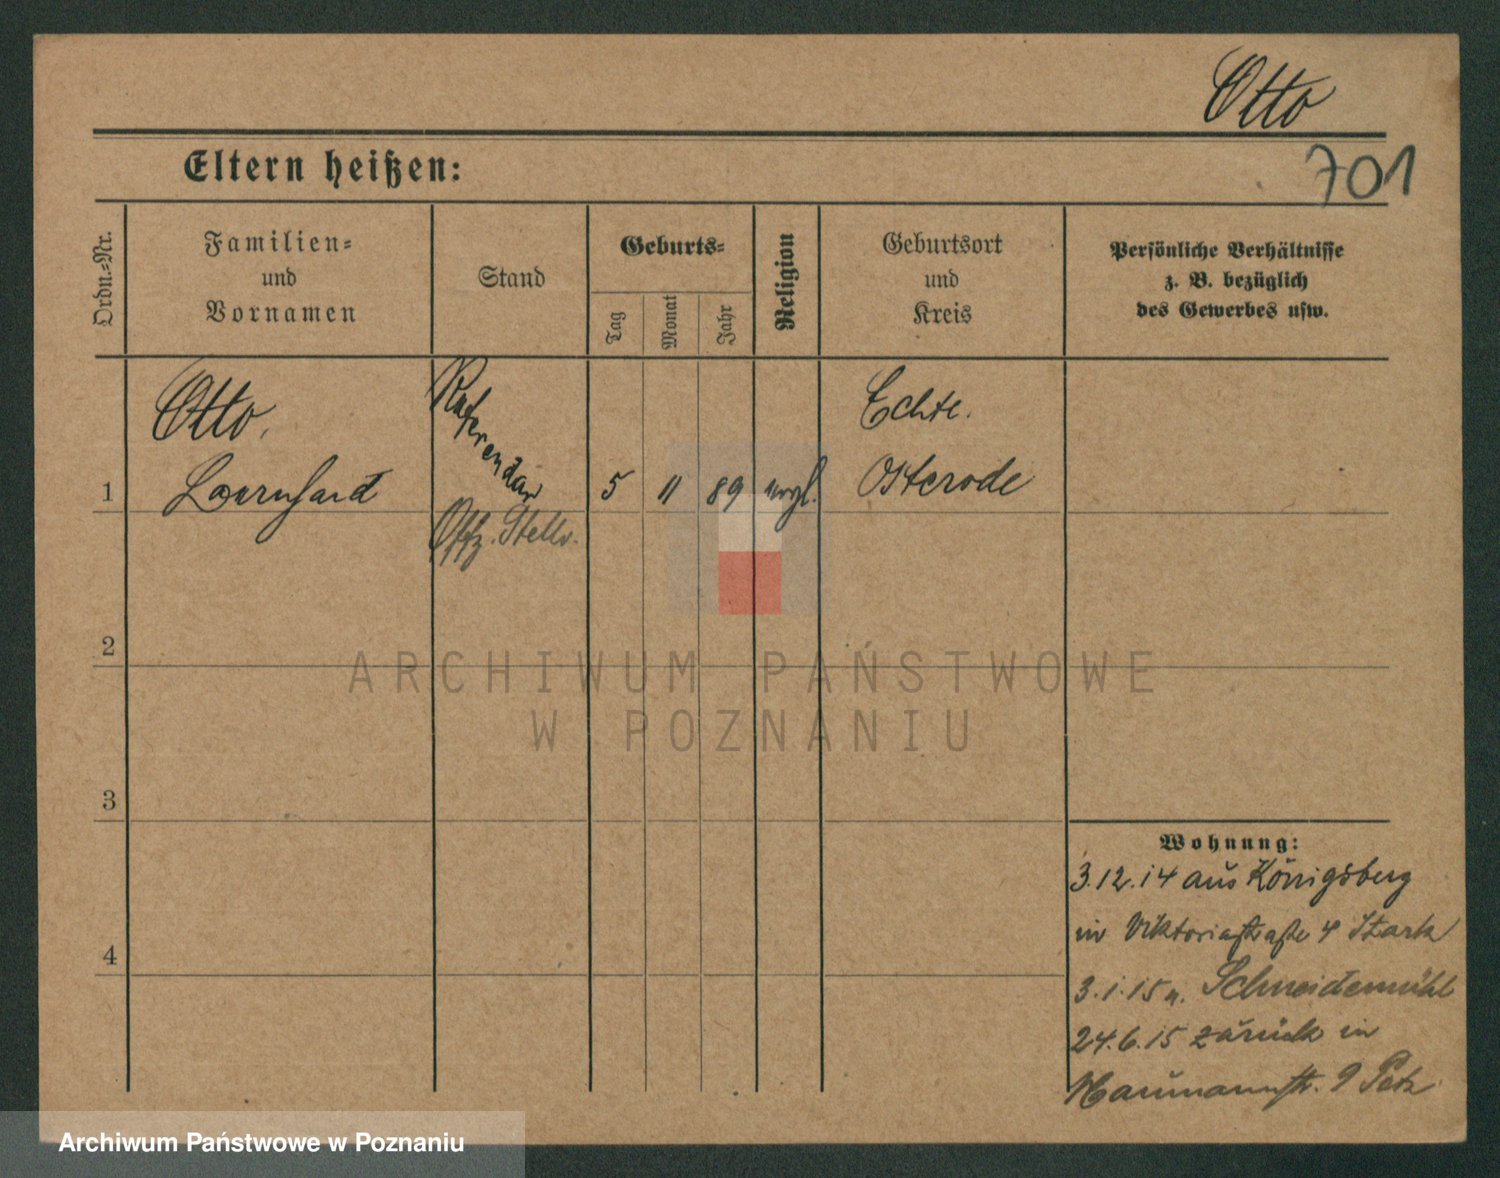 Otto
Eltern heißen:
701
Ordn.=Nr.
Familien=
und
Vornamen
Stand
Geburts=
Tag
Monat
Jahr
Religion
Geburtsort
und
Kreis
Persönliche Verhältnisse
z. B. bezüglich
des Gewerbes usw.
Otto,
Referendar
Echte.
1
5 11 89
Osterode
Offz. Stellv.
2
3
4
Wohnung:
3.12.14 aus Königsberg
in Viktoriastraße 4 Stark
3.1.15 n. Schneidemühl
24.6.15 zurück in
Naumannstr. 9
ARCHIWUM PAŃSTWOWE
W POZNANIU
Archiwum Państwowe w Poznaniu